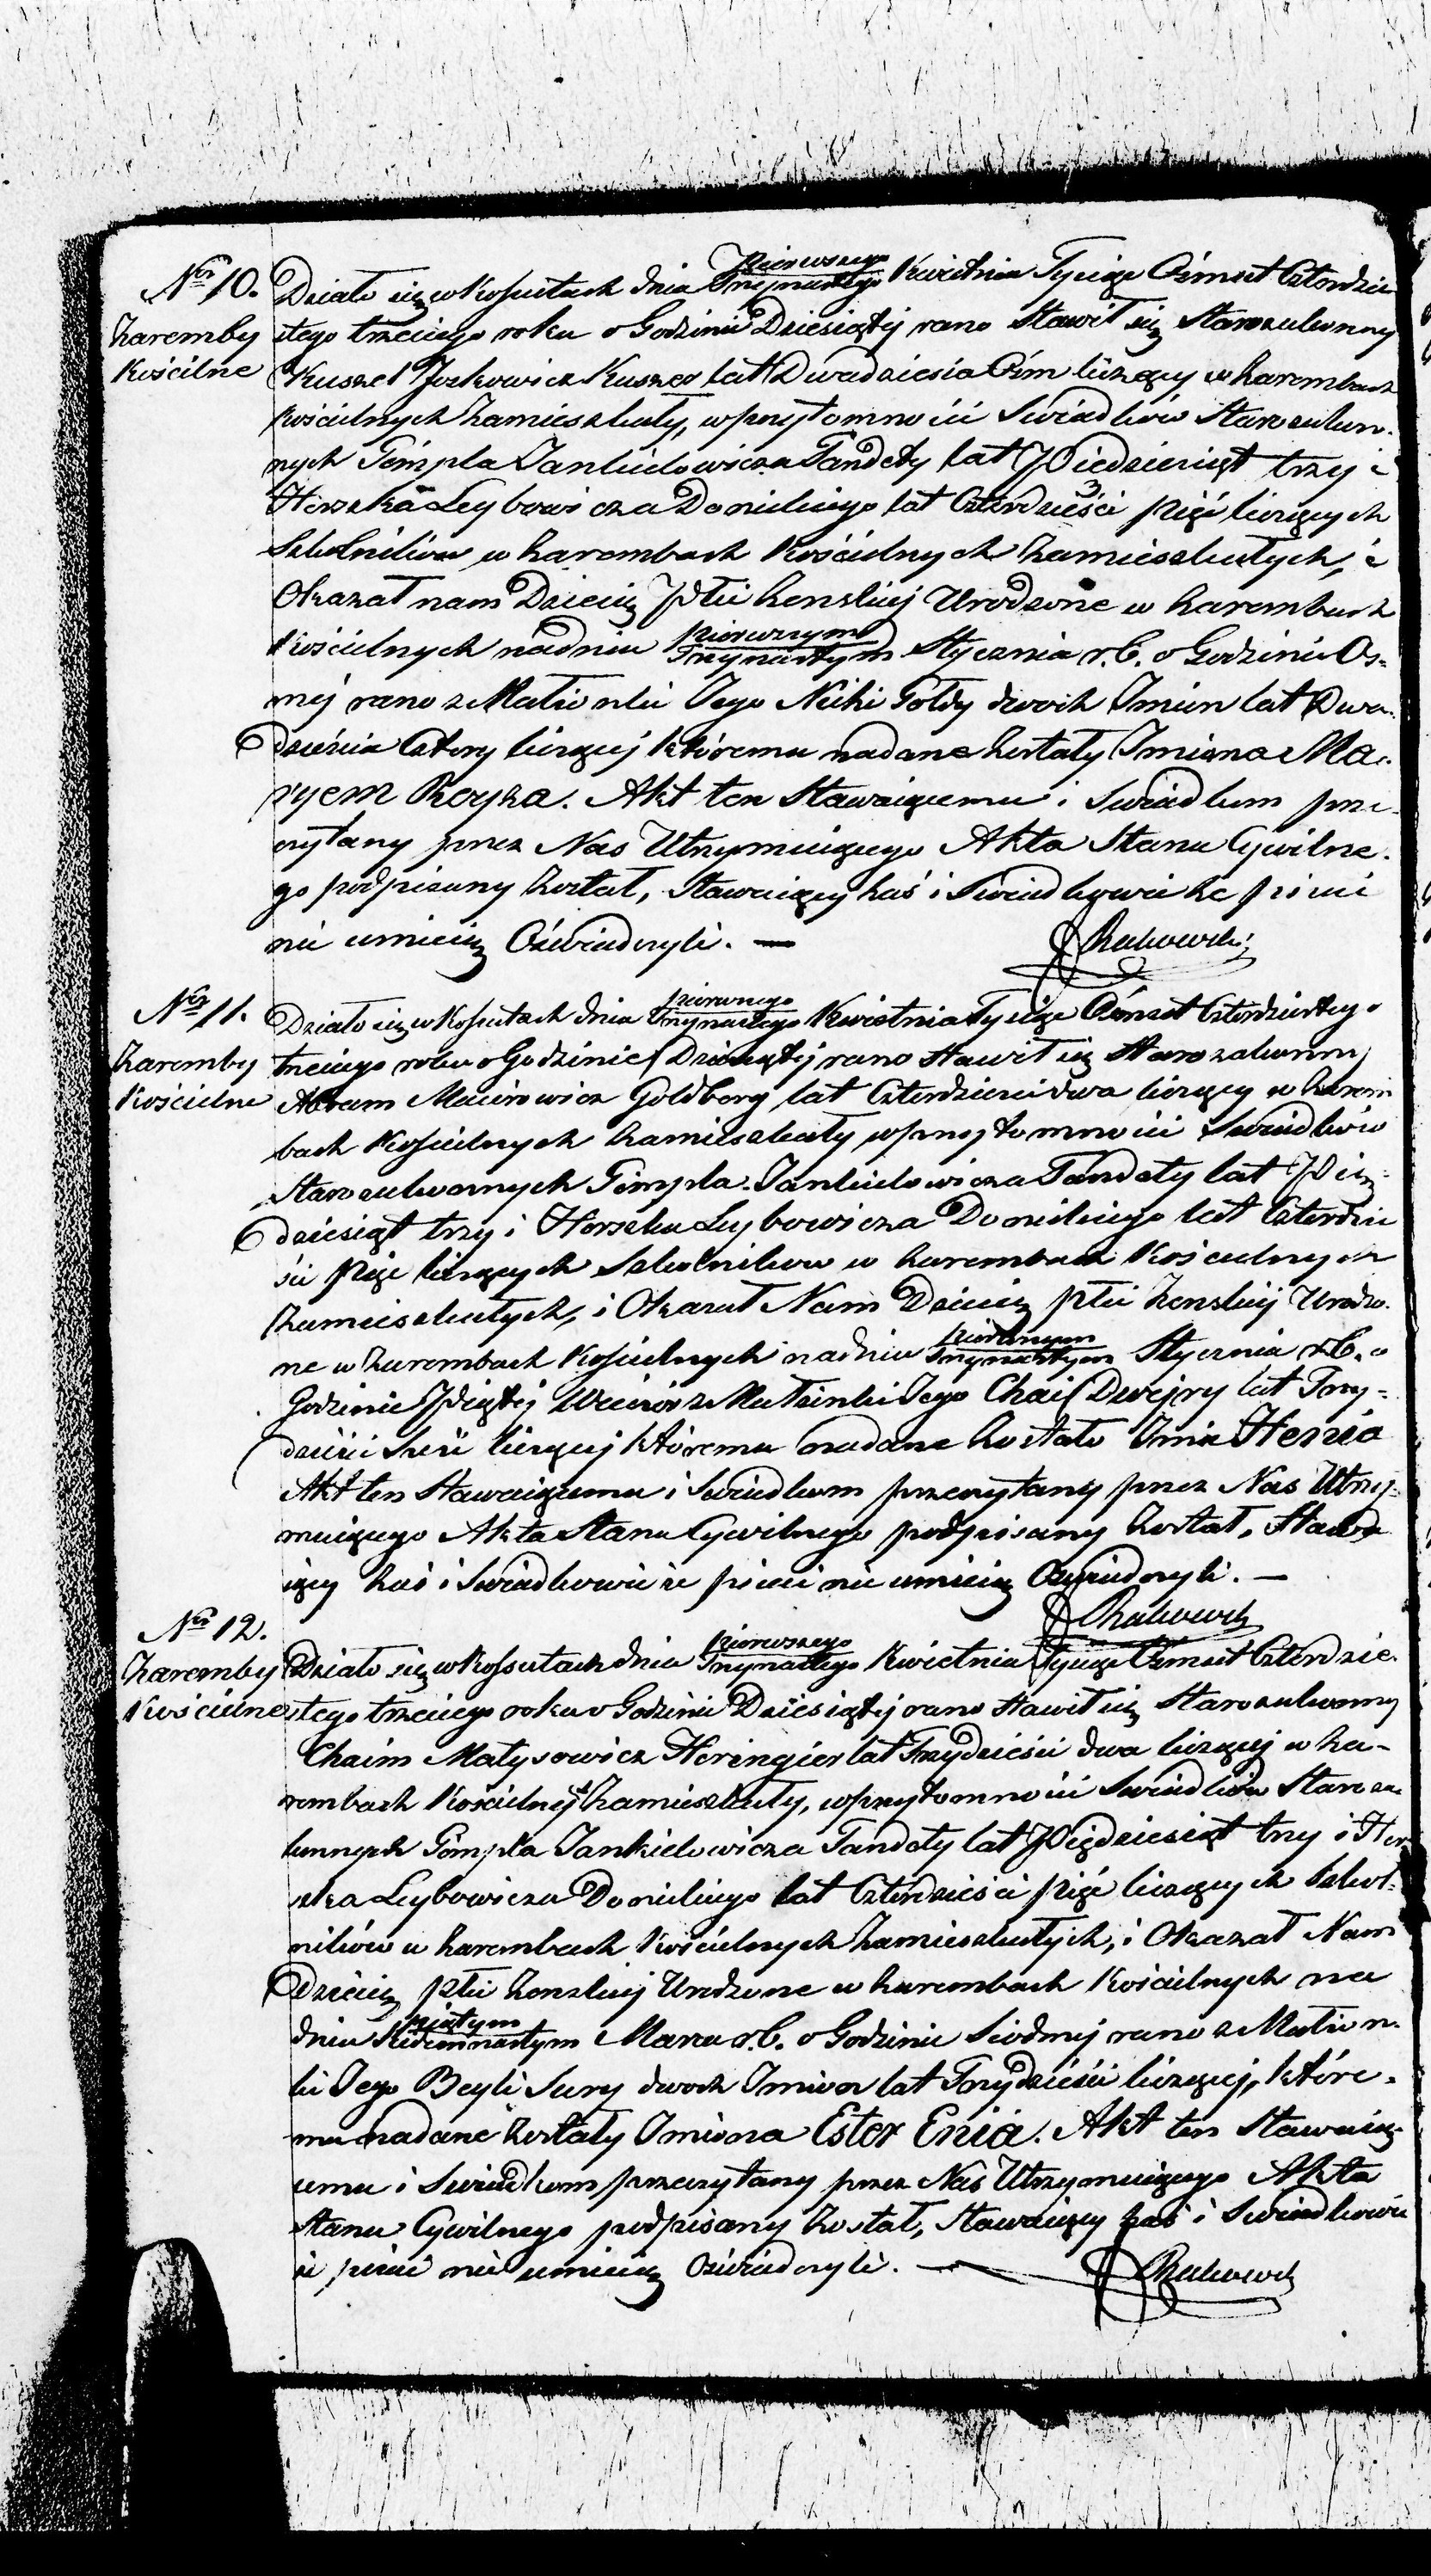 Nr 10.
Zaremby
Kościelne
Działo się w Kossutach dnia pierwszego / Trzynastego Kwietnia Tysiąc Ośmset Czterdzie
stego trzeciego roku o Godzinie Dziesiątej rano Stawił się Starozakonny
Kuszel Joskowicz Kuszer lat Dwadzieścia Ośm liczący w Zarembach
Kościelnych Zamieszkały, w przytomności Świadków Starozakon-
nych Gimpla Jankielowicza Tandety lat Piędziesiąt trzy i
Herszka Leybowicza Domickiego lat Czterdzieści pięć liczących
Szkolników w Zarembach Kościelnych Zamieszkałych, i
Okazał nam Dziecię Płci Żenskiej Urodzone w Zarembach
Kościelnych na dniu pierwszym / Trzynastym Stycznia r.b. o Godzinie Os-
mej rano z Małżonki Jego Nichi Gołdy dwoch Imion lat Dwa-
dzieścia Cztery liczącej któremu nadane zostały Imiona Ma-
ryem Reyza. Akt ten Stawaiącemu i Świadkom prze-
czytany przez Nas Utrzymuiącego Akta Stanu Cywilne-
go podpisany został, Stawaiący zaś i Świadkowie że pisać
nie umieią Oświadczyli. —
Nr 11.
Zaremby
Kościelne
Działo się w Kossutach dnia pierwszego / Trzynastego Kwietnia Tysiąc Ośmset Czterdziestego
trzeciego roku o Godzinie Dziesiątej rano stawił się Starozakonny
Abram Meierowicz Goldberg lat Czterdzieści dwa liczący w Zarem
bach Kościelnych Zamieszkały w przytomności Świadków
Starozakonnych Gimpla Jankielowicza Tandety lat Pię-
dziesiąt trzy i Herszka Leybowicza Domickiego lat Czterdzie
ści pięć liczących Szkolników w Zarembach Kościelnych
Zamieszkałych, i Okazał Nam Dziecię płci Żenskiej Urodzo-
ne w Zarembach Kościelnych na dniu pierwszym / Trzynastym Stycznia r.b. o
Godzinie Piątej Wieczór z Małżonki Jego Chai Dwejry lat Trzy-
dzieści sześć liczącej któremu nadane zostało Imie Henia
Akt ten Stawaiącemu i Świadkom przeczytany przez Nas Utrzy-
muiącego Akta Stanu Cywilnego podpisany został, Stawa
iący zaś i Świadkowie że pisać nie umieią Oświadczyli. —
Nr 12.
Zaremby
Kościelne
Działo się w Kossutach dnia pierwszego / Trzynastego Kwietnia Tysiąc Ośmset Czterdzie-
stego trzeciego roku o Godzinie Dziesiątej rano stawił się Starozakonny
Chaim Matysowicz Heringier lat Trzydzieści dwa liczący w Za-
rembach Kościelnych Zamieszkały, w przytomności Świadków Staroza
konnych Gimpla Jankielowicza Tandety lat Pięćdziesiąt trzy i Her
szka Leybowicza Domickiego lat Czterdzieści pięć liczących Szkol-
ników w Zarembach Kościelnych Zamieszkałych, i Okazał Nam
Dziecię płci Żenskiej Urodzone w Zarembach Kościelnych na
dniu piątym / Siedemnastym Marca r.b. o Godzinie Siódmej rano z Małżon-
ki Jego Beyli Sury dwoch Imion lat Trzydzieści liczącej, które-
mu nadane zostały Imiona Ester Enia. Akt ten Stawaią-
cemu i Świadkom przeczytany przez Nas Utrzymuiącego Akta
Stanu Cywilnego podpisany został, Stawaiący zaś i Świadkowie
że pisać nie umieią Oświadczyli. —